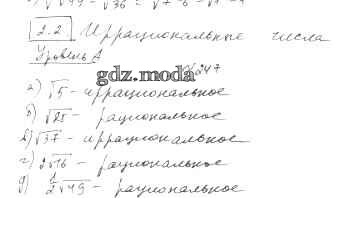 √49 - √36 = √7-6 = √1 = 1
2.2. Иррациональные числа
Уровень А
№47
gdz.moda
а) √5 - иррациональное
б) √25 - рациональное
в) √37 - иррациональное
г) 2√16 - рациональное
д) 1/2√49 - рациональное